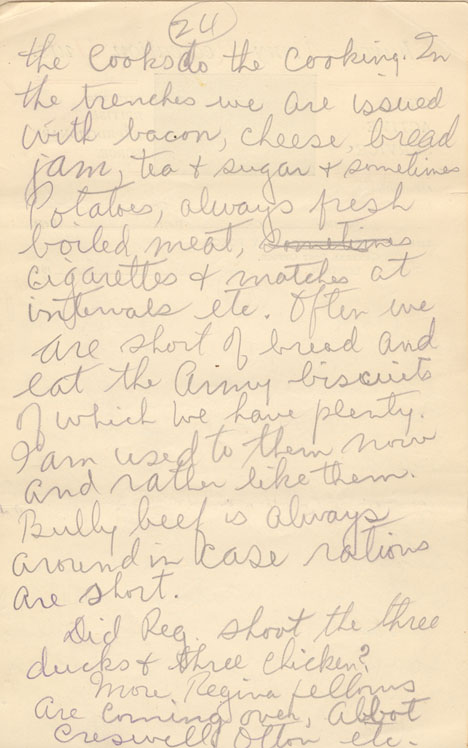 24
the cooks do the cooking. In
the trenches we are issued
with bacon, cheese, bread
jam, tea + sugar + sometimes
Potatoes, always fresh
boiled meat, sometimes
cigarettes & matches at
intervals etc. Often we
are short of bread and
eat the Army biscuits
of which we have plenty.
I am used to them now
and rather like them.
Bully beef is always
around in case rations
are short.
Did Reg. shoot the three
ducks & three chicken?
More Regina fellows
are coming over, Abbot
Creswell Olton etc.